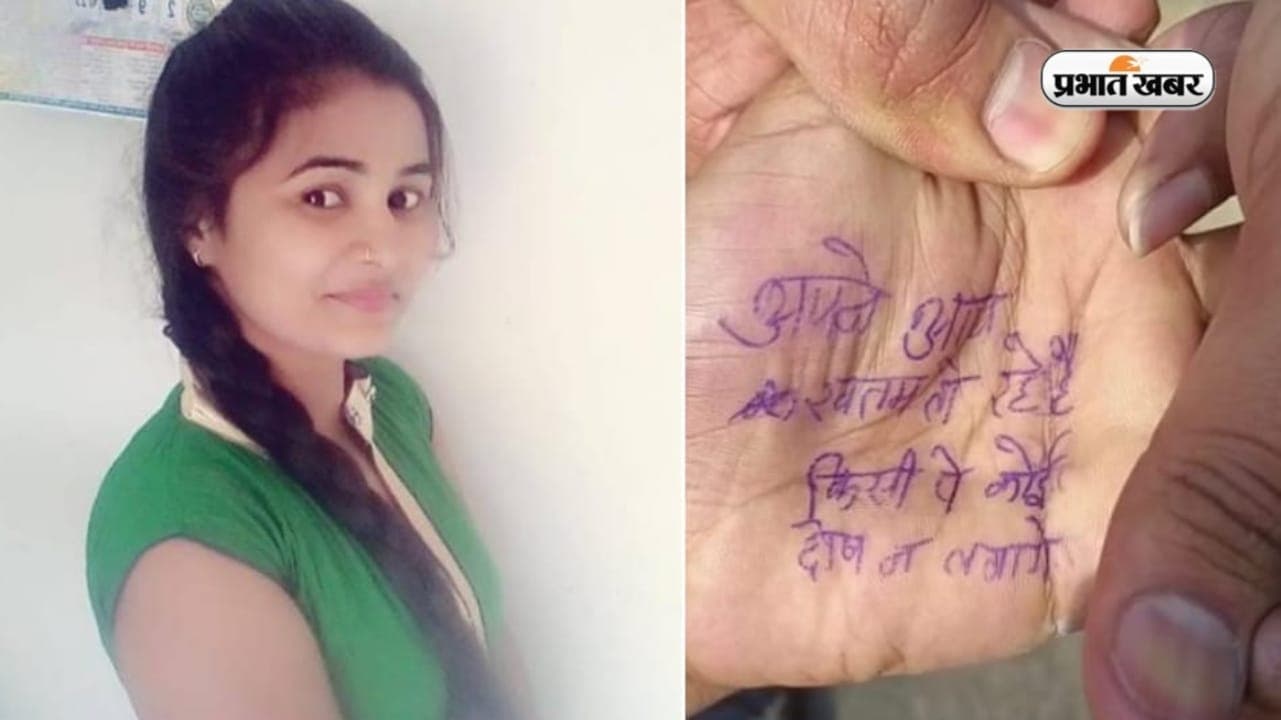 प्रभात खबर
अपने आप
खतम हो रहे है
किसी पे कोई
दोष न लगाये